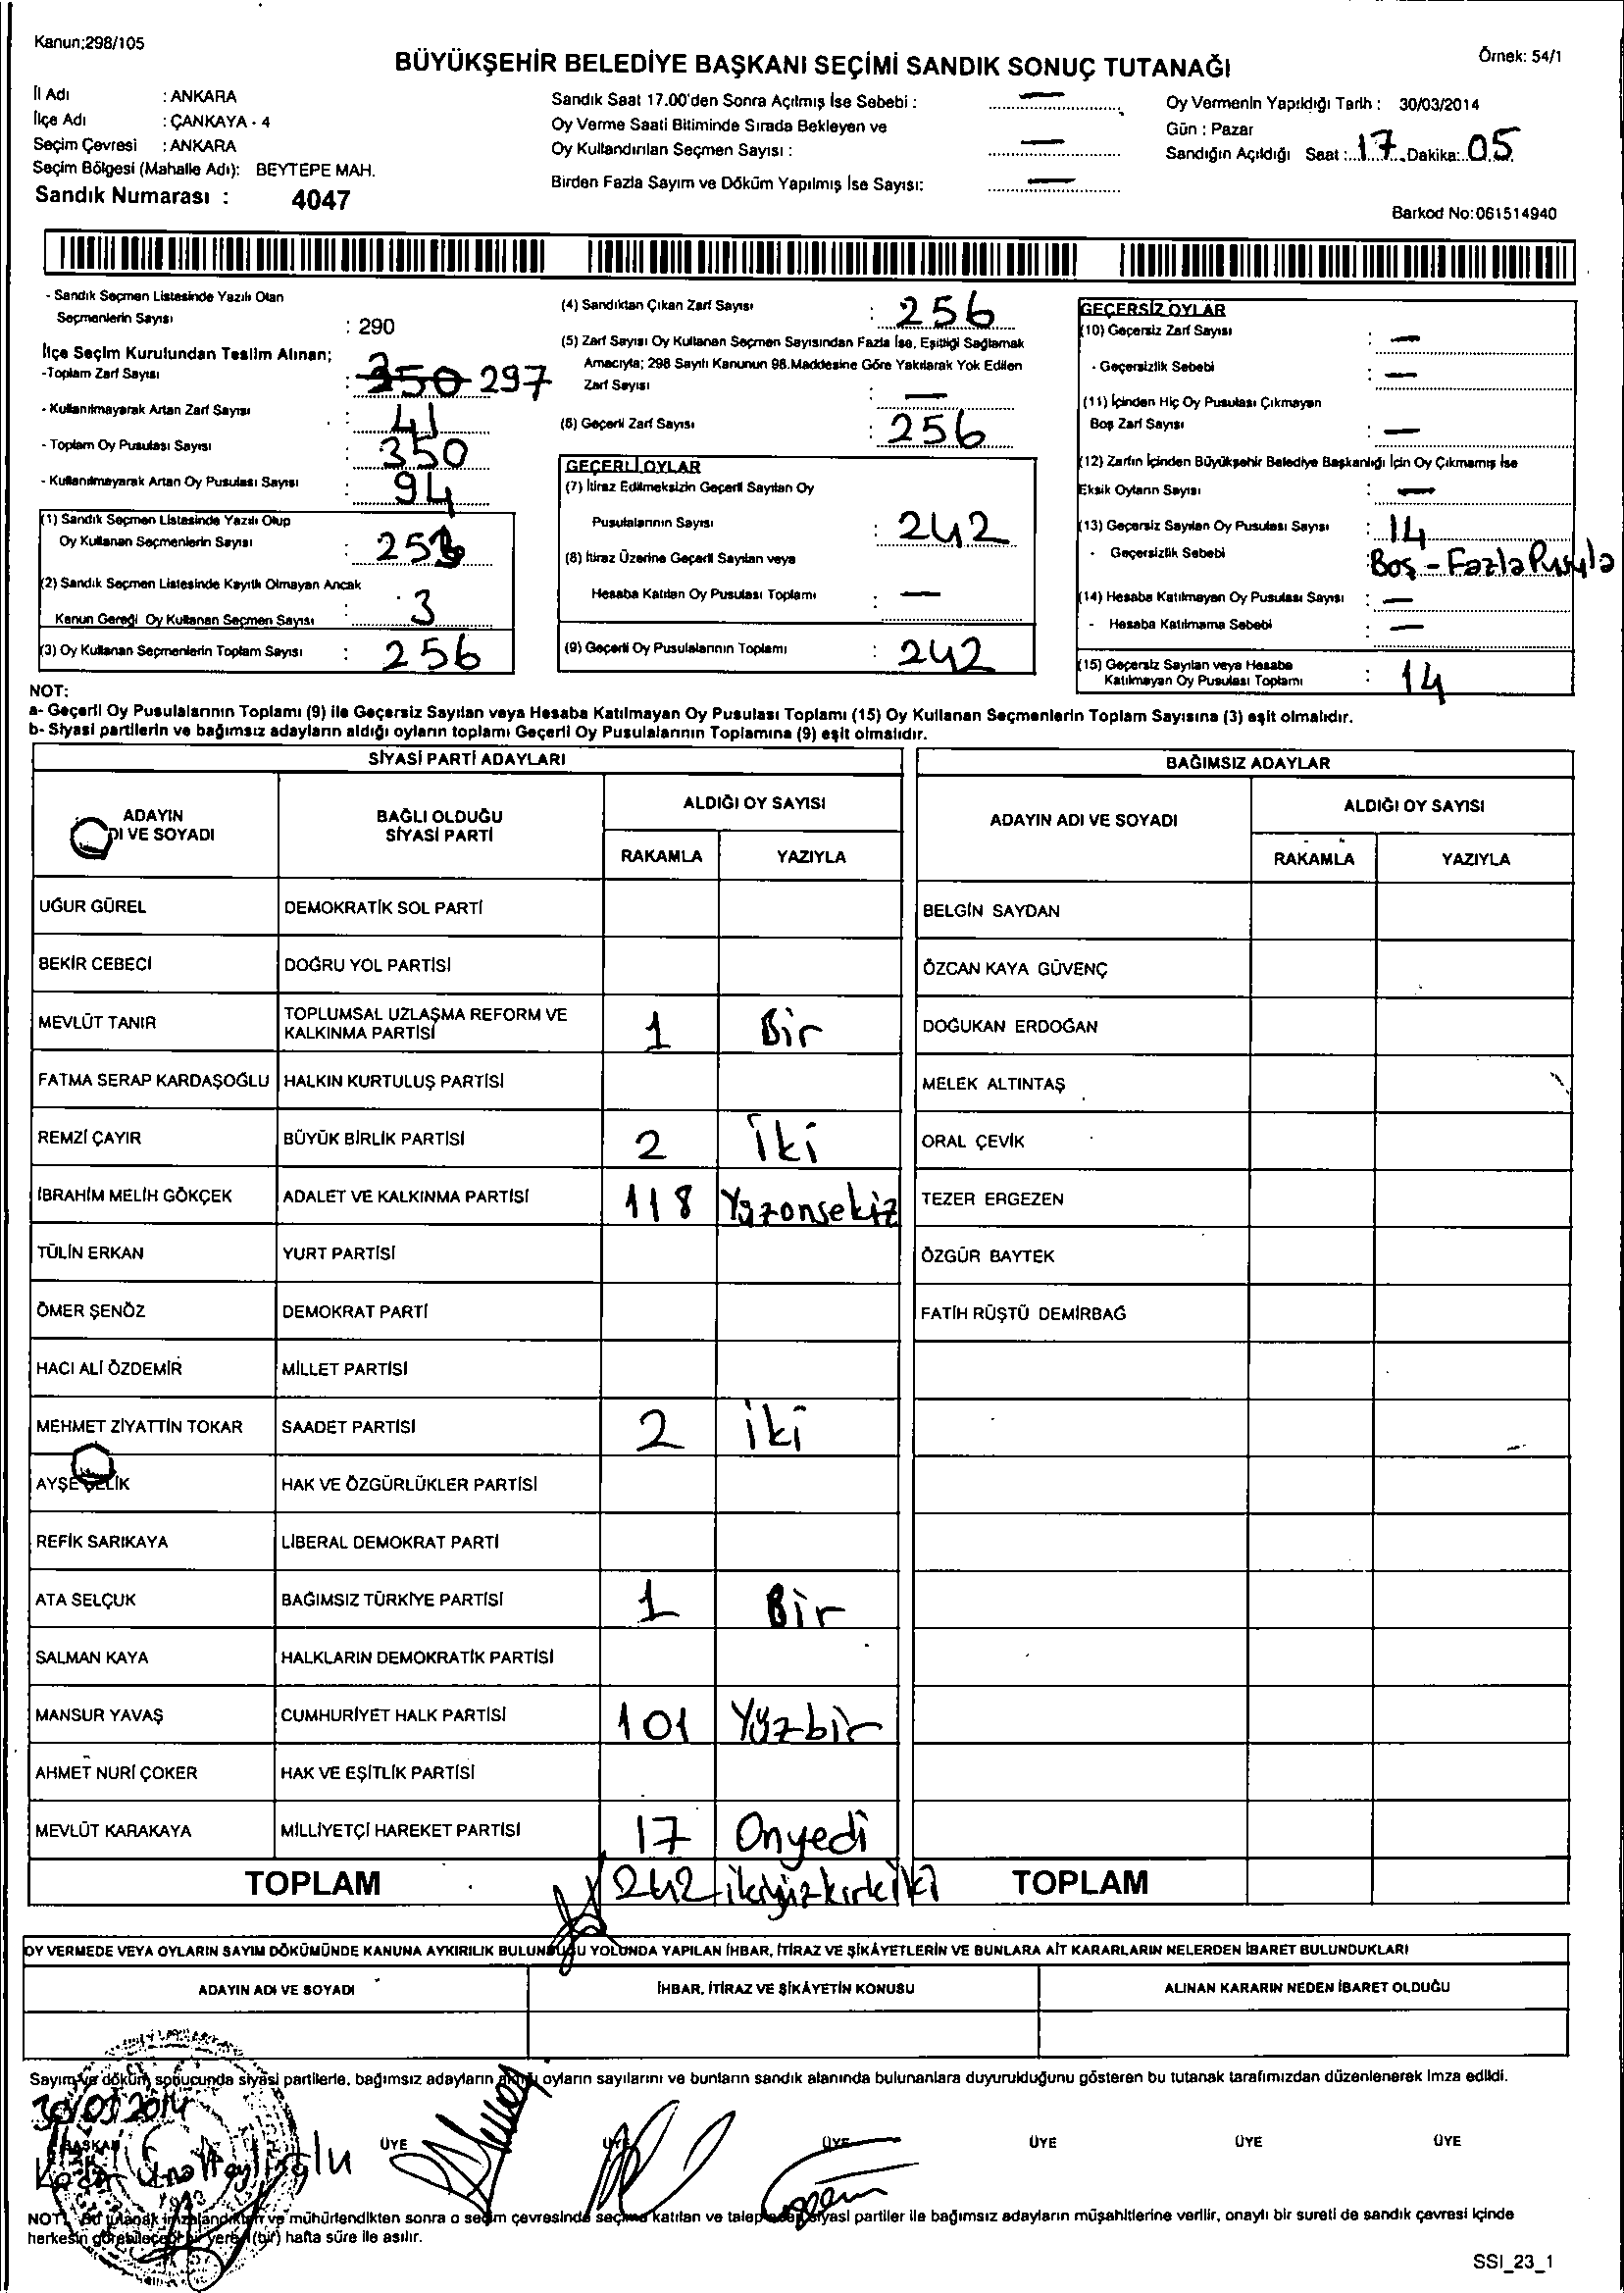 Kanun;298/105
Örnek: 54/1
BÜYÜKŞEHİR BELEDİYE BAŞKANI SEÇİMİ SANDIK SONUÇ TUTANAĞI
İl Adı : ANKARA
İlçe Adı : ÇANKAYA - 4
Seçim Çevresi : ANKARA
Seçim Bölgesi (Mahalle Adı): BEYTEPE MAH.
Sandık Numarası : 4047
Sandık Saat 17.00'den Sonra Açılmış İse Sebebi : —
Oy Verme Saati Bitiminde Sırada Bekleyen ve
Oy Kullandırılan Seçmen Sayısı : —
Birden Fazla Sayım ve Döküm Yapılmış İse Sayısı: —
Oy Vermenin Yapıldığı Tarih : 30/03/2014
Gün : Pazar
Sandığın Açıldığı Saat : 17 Dakika: 05
Barkod No:061514940
- Sandık Seçmen Listesinde Yazılı Olan
Seçmenlerin Sayısı : 290
İlçe Seçim Kurulundan Teslim Alınan;
-Toplam Zarf Sayısı : 350 297
- Kullanılmayarak Artan Zarf Sayısı : 41
- Toplam Oy Pusulası Sayısı : 350
- Kullanılmayarak Artan Oy Pusulası Sayısı : 94
(1) Sandık Seçmen Listesinde Yazılı Olup
Oy Kullanan Seçmenlerin Sayısı : 253
(2) Sandık Seçmen Listesinde Kayıtlı Olmayan Ancak
Kanun Gereği Oy Kullanan Seçmen Sayısı : 3
(3) Oy Kullanan Seçmenlerin Toplam Sayısı : 256
(4) Sandıktan Çıkan Zarf Sayısı : 256
(5) Zarf Sayısı Oy Kullanan Seçmen Sayısından Fazla İse, Eşitliği Sağlamak
Amacıyla; 298 Sayılı Kanunun 98.Maddesine Göre Yakılarak Yok Edilen
Zarf Sayısı : —
(6) Geçerli Zarf Sayısı : 256
GEÇERLİ OYLAR
(7) İtiraz Edilmeksizin Geçerli Sayılan Oy
Pusulalarının Sayısı : 242
(8) İtiraz Üzerine Geçerli Sayılan veya
Hesaba Katılan Oy Pusulası Toplamı : —
(9) Geçerli Oy Pusulalarının Toplamı : 242
GEÇERSİZ OYLAR
(10) Geçersiz Zarf Sayısı : —
- Geçersizlik Sebebi : —
(11) İçinden Hiç Oy Pusulası Çıkmayan
Boş Zarf Sayısı : —
(12) Zarfın İçinden Büyükşehir Belediye Başkanlığı İçin Oy Çıkmamış İse
Eksik Oyların Sayısı : —
(13) Geçersiz Sayılan Oy Pusulası Sayısı : 14
- Geçersizlik Sebebi : Boş - Fazla Pusula
(14) Hesaba Katılmayan Oy Pusulası Sayısı : —
- Hesaba Katılmama Sebebi : —
(15) Geçersiz Sayılan veya Hesaba
Katılmayan Oy Pusulası Toplamı : 14
NOT:
a- Geçerli Oy Pusulalarının Toplamı (9) ile Geçersiz Sayılan veya Hesaba Katılmayan Oy Pusulası Toplamı (15) Oy Kullanan Seçmenlerin Toplam Sayısına (3) eşit olmalıdır.
b- Siyasi partilerin ve bağımsız adayların aldığı oyların toplamı Geçerli Oy Pusulalarının Toplamına (9) eşit olmalıdır.
SİYASİ PARTİ ADAYLARI
ADAYIN
DI VE SOYADI
BAĞLI OLDUĞU
SİYASİ PARTİ
ALDIĞI OY SAYISI
RAKAMLA YAZIYLA
UĞUR GÜREL DEMOKRATİK SOL PARTİ
BEKİR CEBECİ DOĞRU YOL PARTİSİ
MEVLÜT TANIR TOPLUMSAL UZLAŞMA REFORM VE
KALKINMA PARTİSİ 1 Bir
FATMA SERAP KARDAŞOĞLU HALKIN KURTULUŞ PARTİSİ
REMZİ ÇAYIR BÜYÜK BİRLİK PARTİSİ 2 İki
İBRAHİM MELİH GÖKÇEK ADALET VE KALKINMA PARTİSİ 118 Yüzonsekiz
TÜLİN ERKAN YURT PARTİSİ
ÖMER ŞENÖZ DEMOKRAT PARTİ
HACI ALİ ÖZDEMİR MİLLET PARTİSİ
MEHMET ZİYATTİN TOKAR SAADET PARTİSİ 2 iki
AYŞE ÇELİK HAK VE ÖZGÜRLÜKLER PARTİSİ
REFİK SARIKAYA LİBERAL DEMOKRAT PARTİ
ATA SELÇUK BAĞIMSIZ TÜRKİYE PARTİSİ 1 Bir
SALMAN KAYA HALKLARIN DEMOKRATİK PARTİSİ
MANSUR YAVAŞ CUMHURİYET HALK PARTİSİ 101 Yüzbir
AHMET NURİ ÇOKER HAK VE EŞİTLİK PARTİSİ
MEVLÜT KARAKAYA MİLLİYETÇİ HAREKET PARTİSİ 17 Onyedi
TOPLAM 242 ikiyüzkırkiki
BAĞIMSIZ ADAYLAR
ADAYIN ADI VE SOYADI
ALDIĞI OY SAYISI
RAKAMLA YAZIYLA
BELGİN SAYDAN
ÖZCAN KAYA GÜVENÇ
DOĞUKAN ERDOĞAN
MELEK ALTINTAŞ
ORAL ÇEVİK
TEZER ERGEZEN
ÖZGÜR BAYTEK
FATİH RÜŞTÜ DEMİRBAĞ
TOPLAM
OY VERMEDE VEYA OYLARIN SAYIM DÖKÜMÜNDE KANUNA AYKIRILIK BULUNDUĞU YOLUNDA YAPILAN İHBAR, İTİRAZ VE ŞİKÂYETLERİN VE BUNLARA AİT KARARLARIN NELERDEN İBARET BULUNDUKLARI
ADAYIN ADI VE SOYADI İHBAR, İTİRAZ VE ŞİKÂYETİN KONUSU ALINAN KARARIN NEDEN İBARET OLDUĞU
Sayım ve döküm sonucunda siyasi partilerle, bağımsız adayların aldığı oyların sayılarını ve bunların sandık alanında bulunanlara duyurulduğunu gösteren bu tutanak tarafımızdan düzenlenerek imza edildi.
30/03/2014
BAŞKAN ÜYE ÜYE ÜYE ÜYE ÜYE ÜYE
NOT: Bu tutanak imzalandıktan ve mühürlendikten sonra o seçim çevresinde seçime katılan ve talep eden siyasi partiler ile bağımsız adayların müşahitlerine verilir, onaylı bir sureti de sandık çevresi içinde
herkesin görebileceği bir yere 1 (bir) hafta süre ile asılır.
SSI_23_1